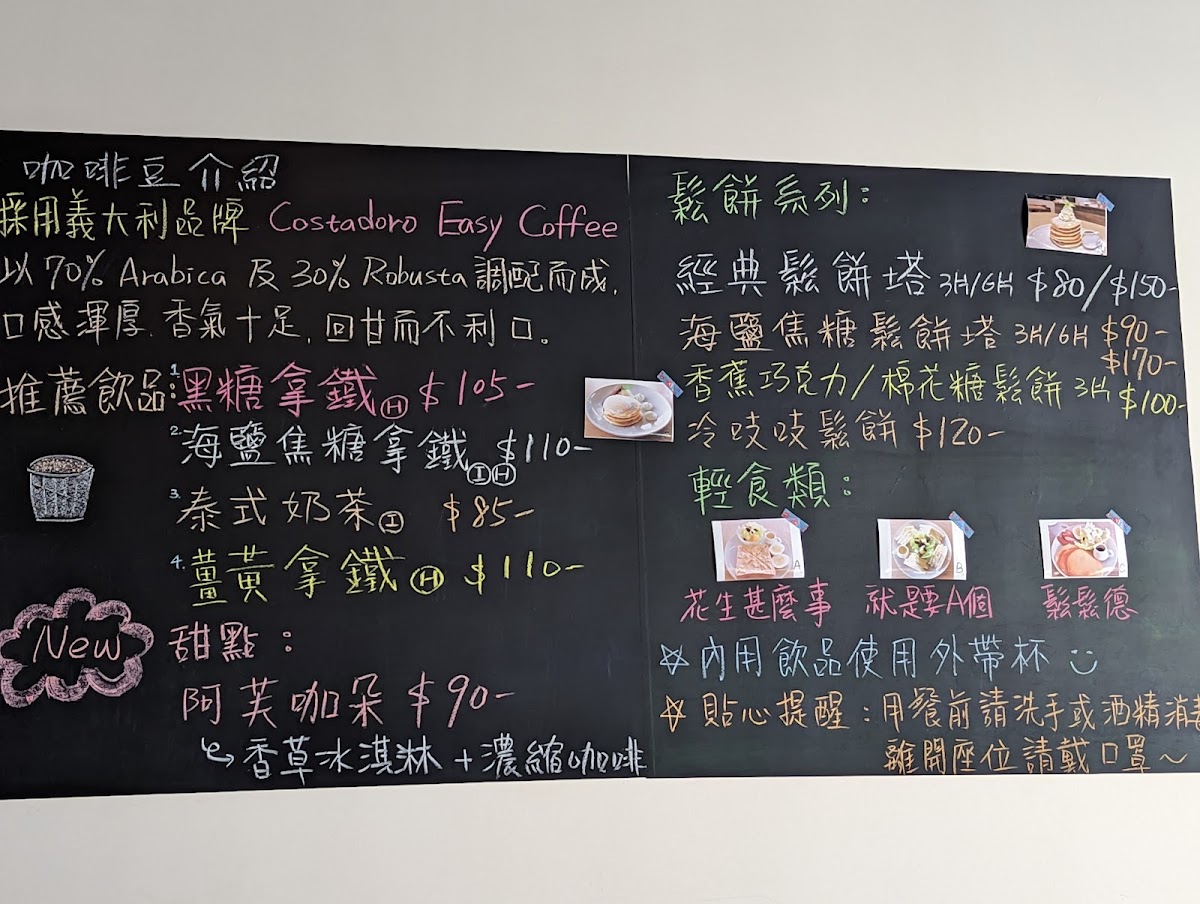 咖啡豆介紹
採用義大利品牌 Costadoro Easy Coffee
以70% Arabica 及30% Robusta調配而成,
口感渾厚.香氣十足,回甘而不利口。
推薦飲品:1.黑糖拿鐵Ⓗ $105-
2.海鹽焦糖拿鐵ⒾⒽ $110-
3.泰式奶茶Ⓘ $85-
4.薑黃拿鐵Ⓗ $110-
New
甜點:
阿芙咖朵 $90-
香草冰淇淋+濃縮咖啡
鬆餅系列:
經典鬆餅塔 3片/6片 $80/$150-
海鹽焦糖鬆餅塔 3片/6片 $90-
$170-
香蕉巧克力/棉花糖鬆餅 3片 $100-
冷吱吱鬆餅 $120-
輕食類:
A
B
C
花生甚麼事 就是要A個 鬆鬆德
☆內用飲品使用外帶杯
☆貼心提醒:用餐前請洗手或酒精消毒
離開座位請戴口罩~